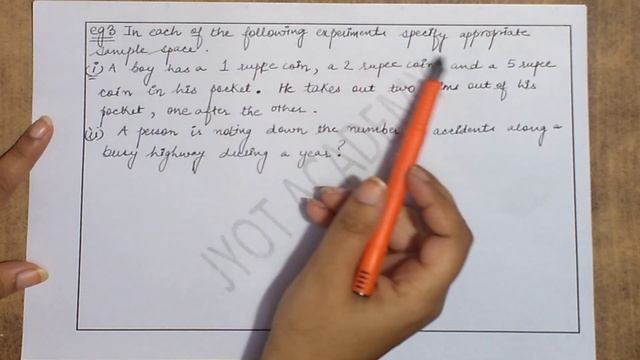 eg 3 In each of the following experiments specify appropriate
sample space.
(i) A boy has a 1 rupee coin, a 2 rupee coin and a 5 rupee
coin in his pocket. He takes out two out of his
pocket, one after the other.
(ii) A person is noting down the number accidents along a
busy highway during a year?
JYOT ACADEMY